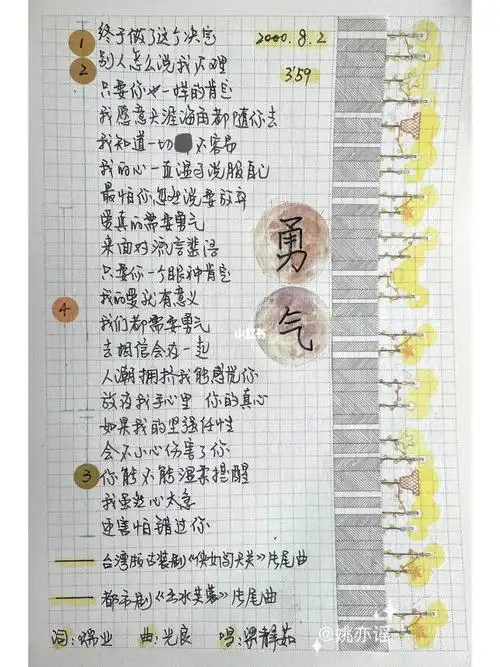 1 终于做了这个决定 2000.8.2
2 别人怎么说我不理 3'59
只要你也一样的肯定
我愿意天涯海角都随你去
我知道一切 不容易
我的心一直温习说服自己
最怕你忽然说要放弃
爱真的需要勇气
来面对流言蜚语
只要你一个眼神肯定
我的爱就有意义
4
我们都需要勇气
去相信会在一起
人潮拥挤我能感觉你
放在我手心里 你的真心
如果我的坚强任性
会不小心伤害了你
3 你能不能温柔提醒
我虽然心太急
还害怕错过你
勇
气
小红书
台湾版古装剧《侠女闯天关》片尾曲
都市剧《出水芙蓉》片尾曲
词:瑞业 曲:光良 唱:梁静茹
@姚亦谣